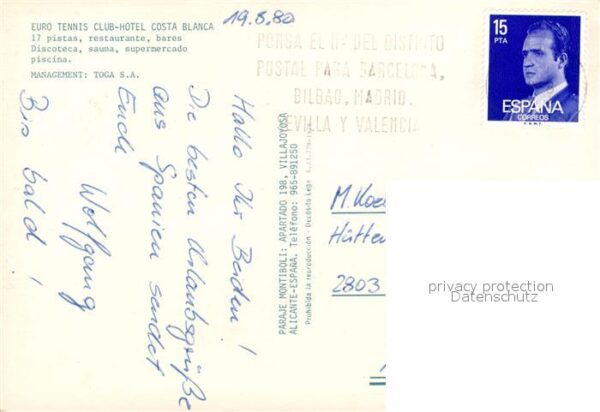 EURO TENNIS CLUB-HOTEL COSTA BLANCA
17 pistas, restaurante, bares
Discoteca, sauna, supermercado
piscina.
MANAGEMENT: TOGA S.A.
19.8.80
PONGA EL Nº DEL DISTRITO
POSTAL PARA BARCELONA,
BILBAO, MADRID,
SEVILLA Y VALENCIA
15
PTA
ESPAÑA
CORREOS
Hallo Ihr Beiden!
Die besten Urlaubsgrüße
aus Spanien sendet
Euch
Wolfgang
Bis bald!
PARAJE MONTIBOLI: APARTADO 198, VILLAJOYOSA
ALICANTE-ESPAÑA. Teléfono: 965-891250
Prohibida la reproducción - Depósito Lega
M. Koe
Hütte
2803
privacy protection
Datenschutz